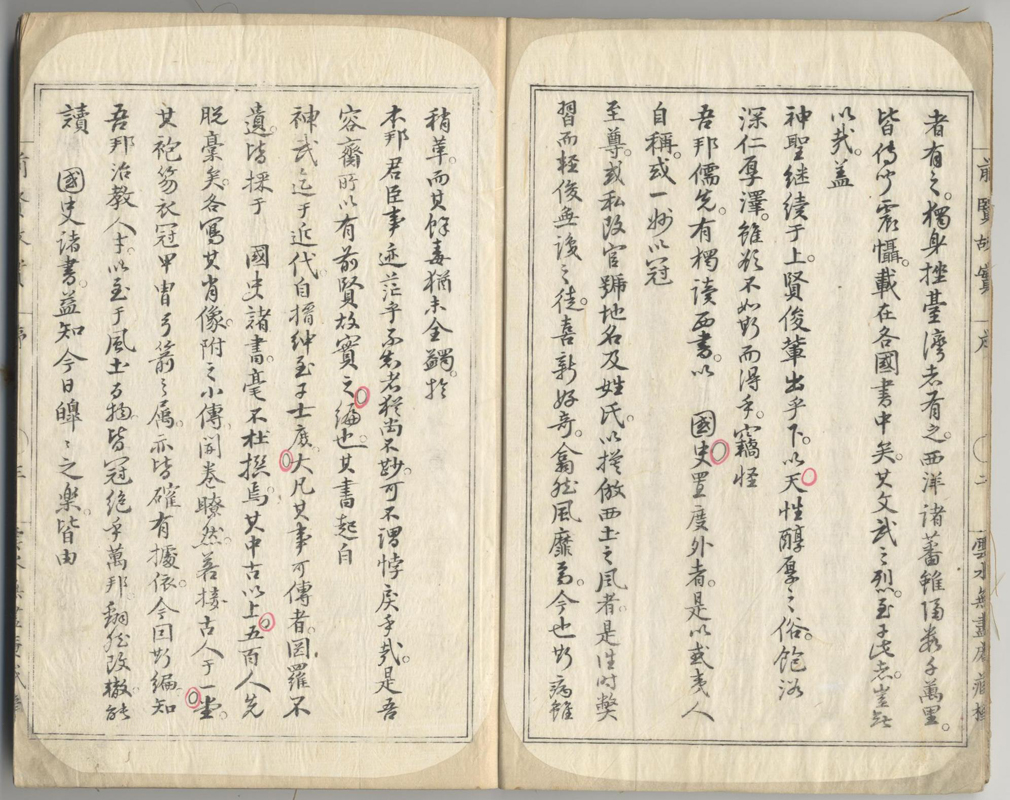 者有之。獨身挫臺灣者有之。西洋諸蕃雖隔数千萬里。
皆傳以震懾。載在各國書中矣。其文武之烈。至于此者。豈無
以哉。蓋
神聖继续于上。賢俊輩出乎下。以天性醇厚之俗。飽浴
深仁厚澤。雖欲不如斯而得乎。竊怪
吾邦儒先。有獨读西書。以　國史置度外者。是以或夷人
自稱。或一妙以冠
至尊。或私改官號地名及姓氏。以摸倣西土之風者。是往時獘
習而輕俊無後之徒。喜新好奇。翕然風靡焉。今也斯病雖
稍革。而其餘毒猶未全蠲。於
本邦君臣事迹茫乎不知者。猶尚不尠。可不謂悖戾乎哉。是吾
容齋所以有前賢故實之編也。其書起自
神武迄于近代。自搢紳至于士庶。大凡其事可傳者。罔羅不
遺。皆採于　國史諸書。毫不杜撰焉。其中古以上五百人先
脱稾矣。各寫其肖像。附之小傳。開卷瞭然。若接古人于一堂。
其袍笏衣冠甲冑弓箭之属。亦皆確有據依。今因斯編知
吾邦治教人才。以至于風土百物。皆冠絶乎萬邦。翻然改轍。能
讀　國史諸書。益知今日皥〻之樂。皆由
前賢故實　序　〇二　雲水無盡庵藏梓